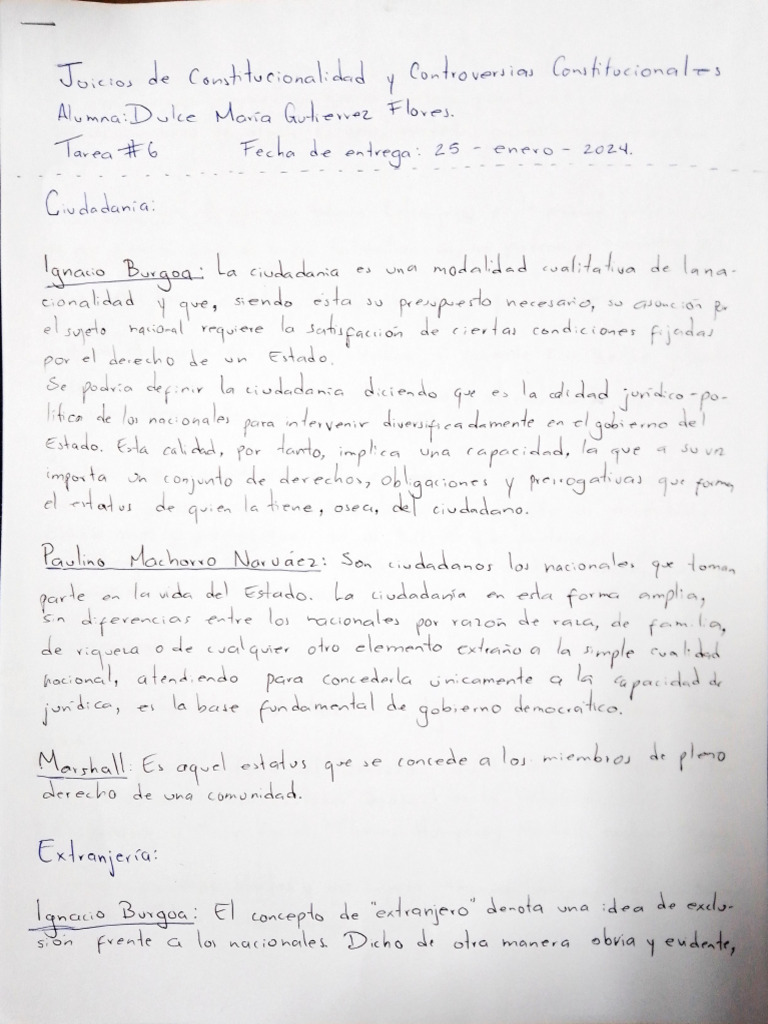 Juicios de Constitucionalidad y Controversias Constitucionales
Alumna: Dulce María Gutierrez Flores.
Tarea #6 Fecha de entrega: 25 - enero - 2024.
Ciudadanía:
Ignacio Burgoa: La ciudadania es una modalidad cualitativa de la na-
cionalidad y que, siendo ésta su presupuesto necesario, su asunción por
el sujeto nacional requiere la satisfacción de ciertas condiciones fijadas
por el derecho de un Estado.
Se podría definir la ciudadanía diciendo que es la calidad jurídico-po-
lítica de los nacionales para intervenir diversificadamente en el gobierno del
Estado. Esta calidad, por tanto, implica una capacidad, la que a su vez
importa un conjunto de derechos, obligaciones y prerrogativas que forman
el estatus de quien la tiene, osea, del ciudadano.
Paulino Machorro Narváez: Son ciudadanos los nacionales que toman
parte en la vida del Estado. La ciudadanía en esta forma amplia,
sin diferencias entre los nacionales por razón de raza, de familia,
de riqueza o de cualquier otro elemento extraño a la simple cualidad
nacional, atendiendo para concederla únicamente a la capacidad de
jurídica, es la base fundamental de gobierno democrático.
Marshall: Es aquel estatus que se concede a los miembros de pleno
derecho de una comunidad.
Extranjería:
Ignacio Burgoa: El concepto de "extranjero" denota una idea de exclu-
sión frente a los nacionales. Dicho de otra manera obvia y evidente,